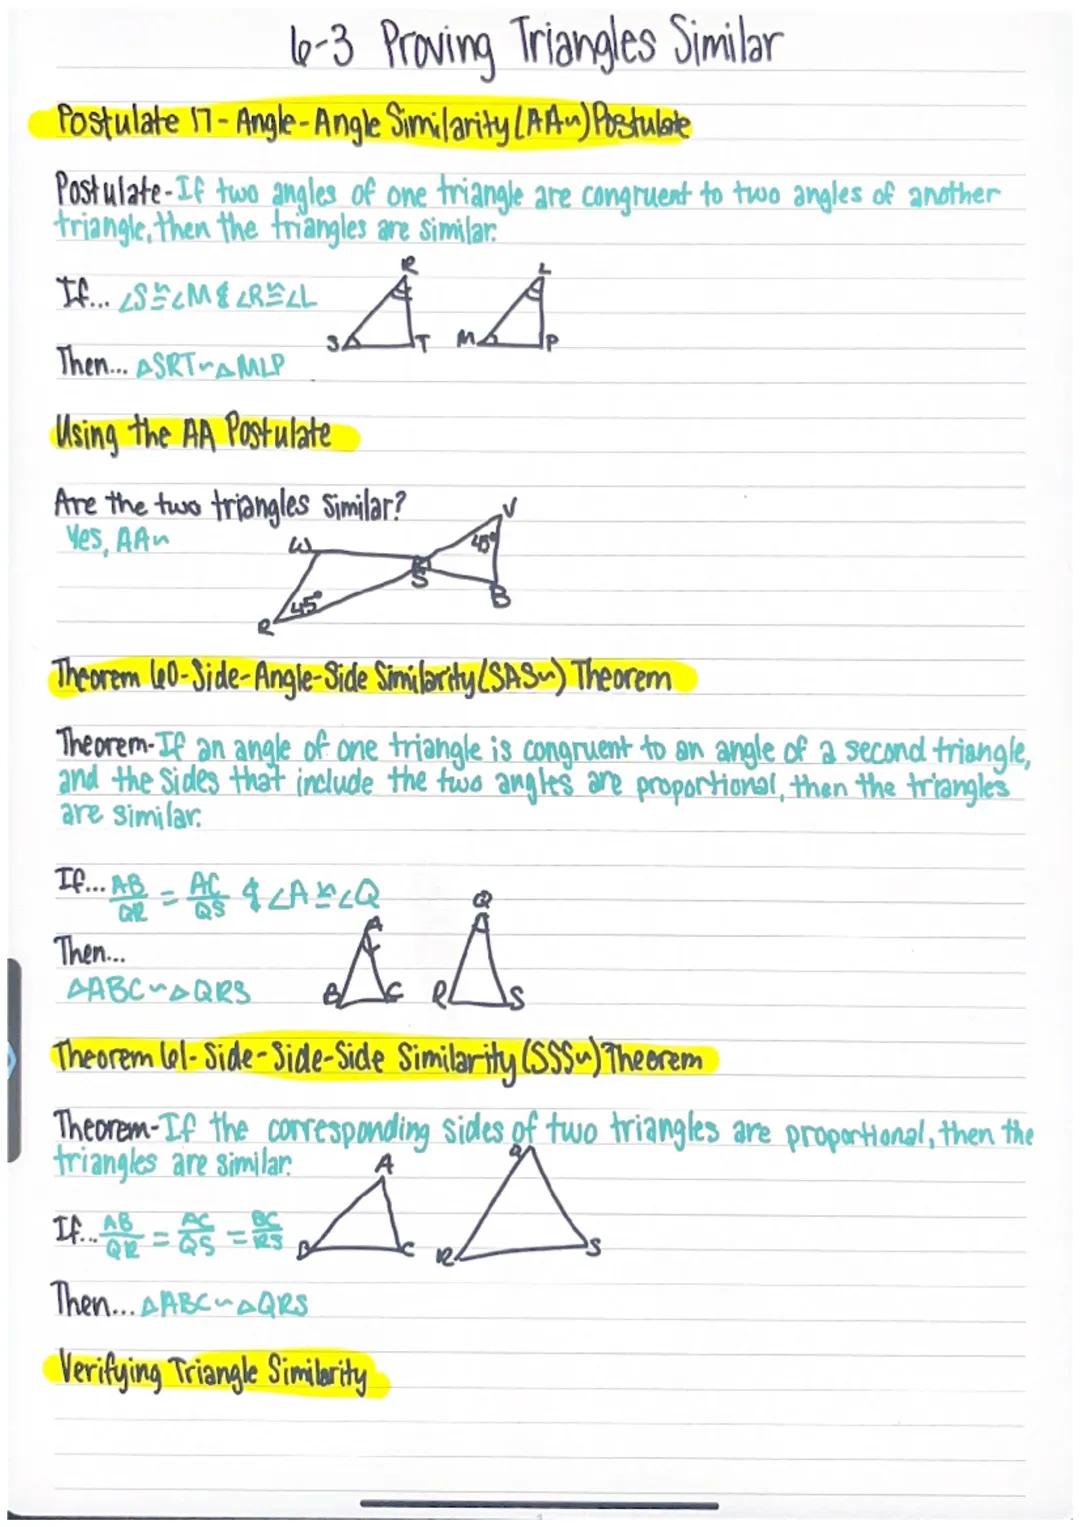 6-3 Proving Triangles Similar
Postulate 17 - Angle-Angle Similarity (AA~) Postulate
Postulate - If two angles of one triangle are congruent to two angles of another
triangle, then the triangles are similar.
If... ∠S≅∠M & ∠R≅∠L
R L
S T M P
Then... △SRT~△MLP
Using the AA Postulate
Are the two triangles similar?
Yes, AA~
W V
45°
S
45° B
R
Theorem 60-Side-Angle-Side Similarity (SAS~) Theorem
Theorem-If an angle of one triangle is congruent to an angle of a second triangle,
and the sides that include the two angles are proportional, then the triangles
are similar.
If... AB/QR = AC/QS & ∠A≅∠Q
A Q
Then...
△ABC~△QRS
B C R S
Theorem 61- Side-Side-Side Similarity (SSS~) Theorem
Theorem-If the corresponding sides of two triangles are proportional, then the
triangles are similar.
A Q
If... AB/QR = AC/QS = BC/RS
B C R S
Then... △ABC~△QRS
Verifying Triangle Similarity